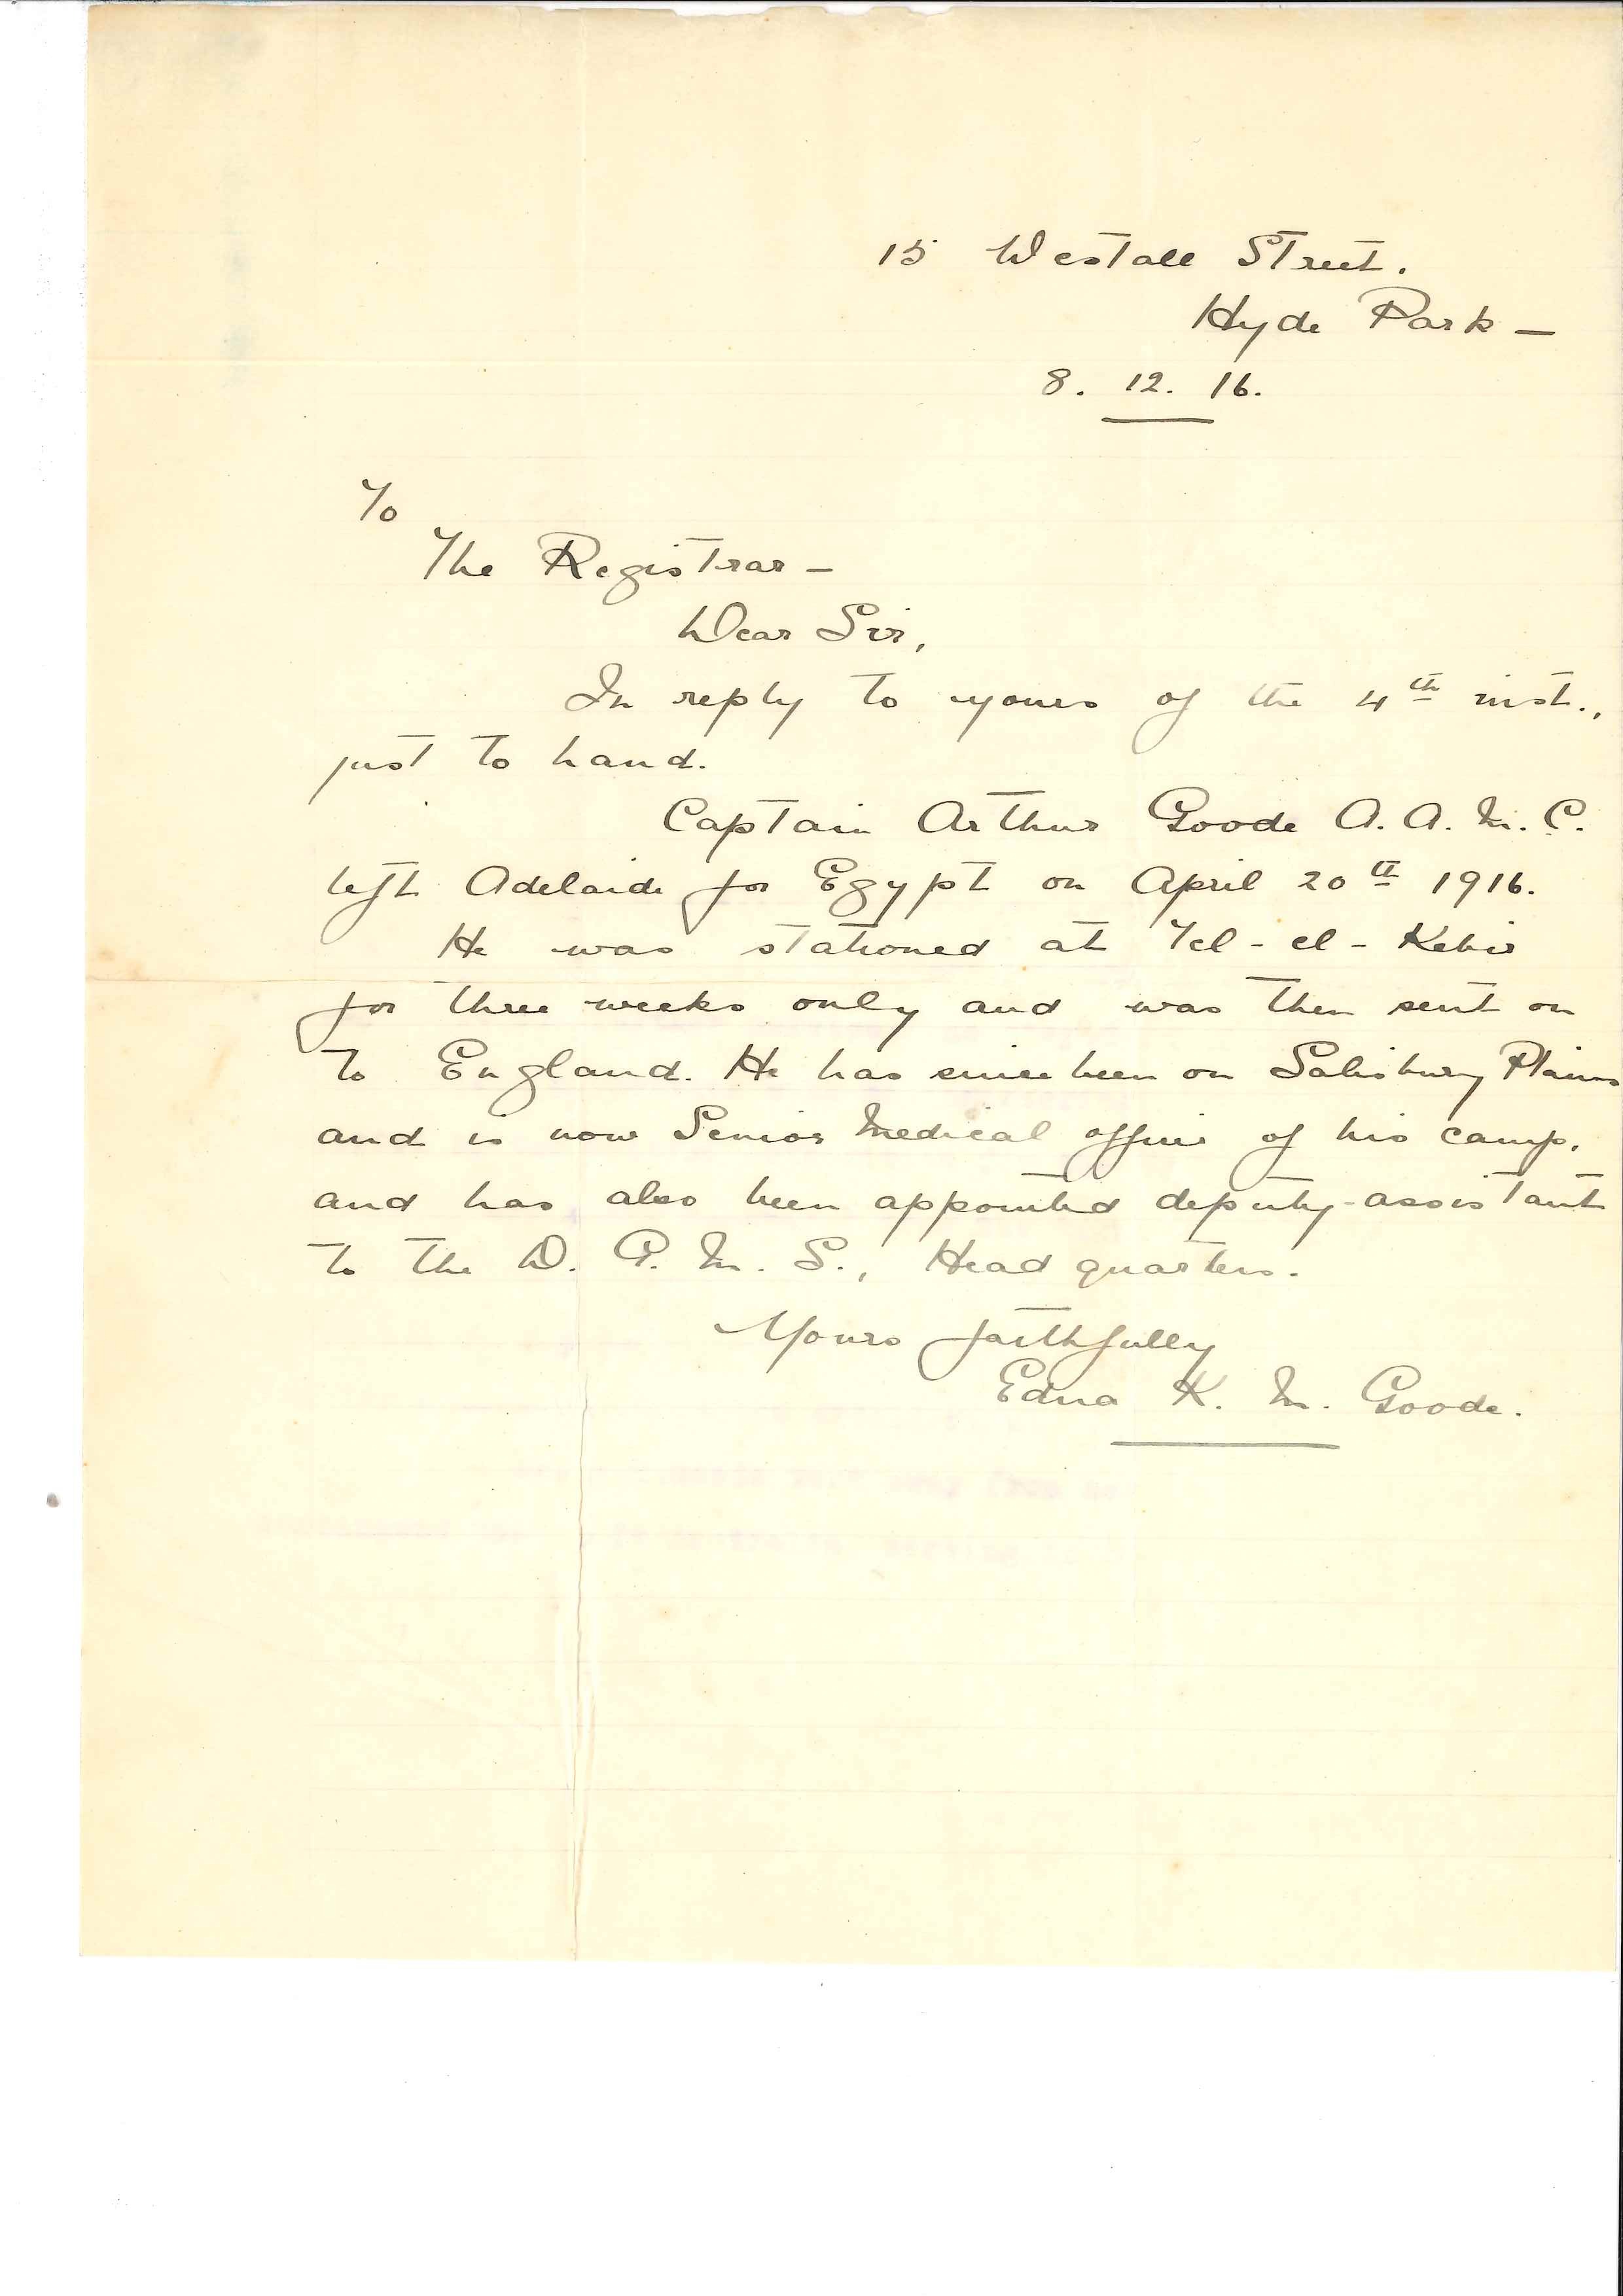 15 Westall Street.
Hyde Park —
8. 12. 16.
To
The Registrar —
Dear Sir,
In reply to yours of the 4th inst.,
just to hand.
Captain Arthur Goode A. A. M. C.
left Adelaide for Egypt on April 20th 1916.
He was stationed at Tel-el-Kebir
for three weeks only and was then sent on
to England. He has since been on Salisbury Plains
and is now Senior Medical officer of his camp.
and has also been appointed deputy-assistant
to the D. A. M. S., Head quarters.
Yours faithfully
Edna K. M. Goode.